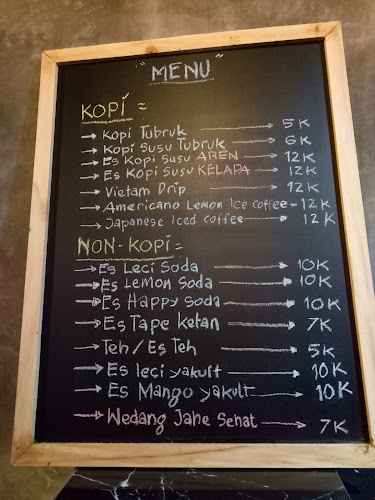 "MENU"
KOPI =
→ Kopi Tubruk → 5K
→ Kopi Susu Tubruk → 6K
→ Es Kopi Susu AREN → 12K
→ Es Kopi Susu KELAPA → 12K
→ Vietam Drip → 12K
→ Americano Lemon Ice Coffee → 12K
→ Japanese Iced Coffee → 12K
NON-KOPI =
→ Es Leci Soda → 10K
→ Es Lemon Soda → 10K
→ Es Happy Soda → 10K
→ Es Tape Ketan → 7K
→ Teh / Es Teh → 5K
→ Es leci yakult → 10K
→ Es Mango yakult → 10K
→ Wedang Jahe Sehat → 7K